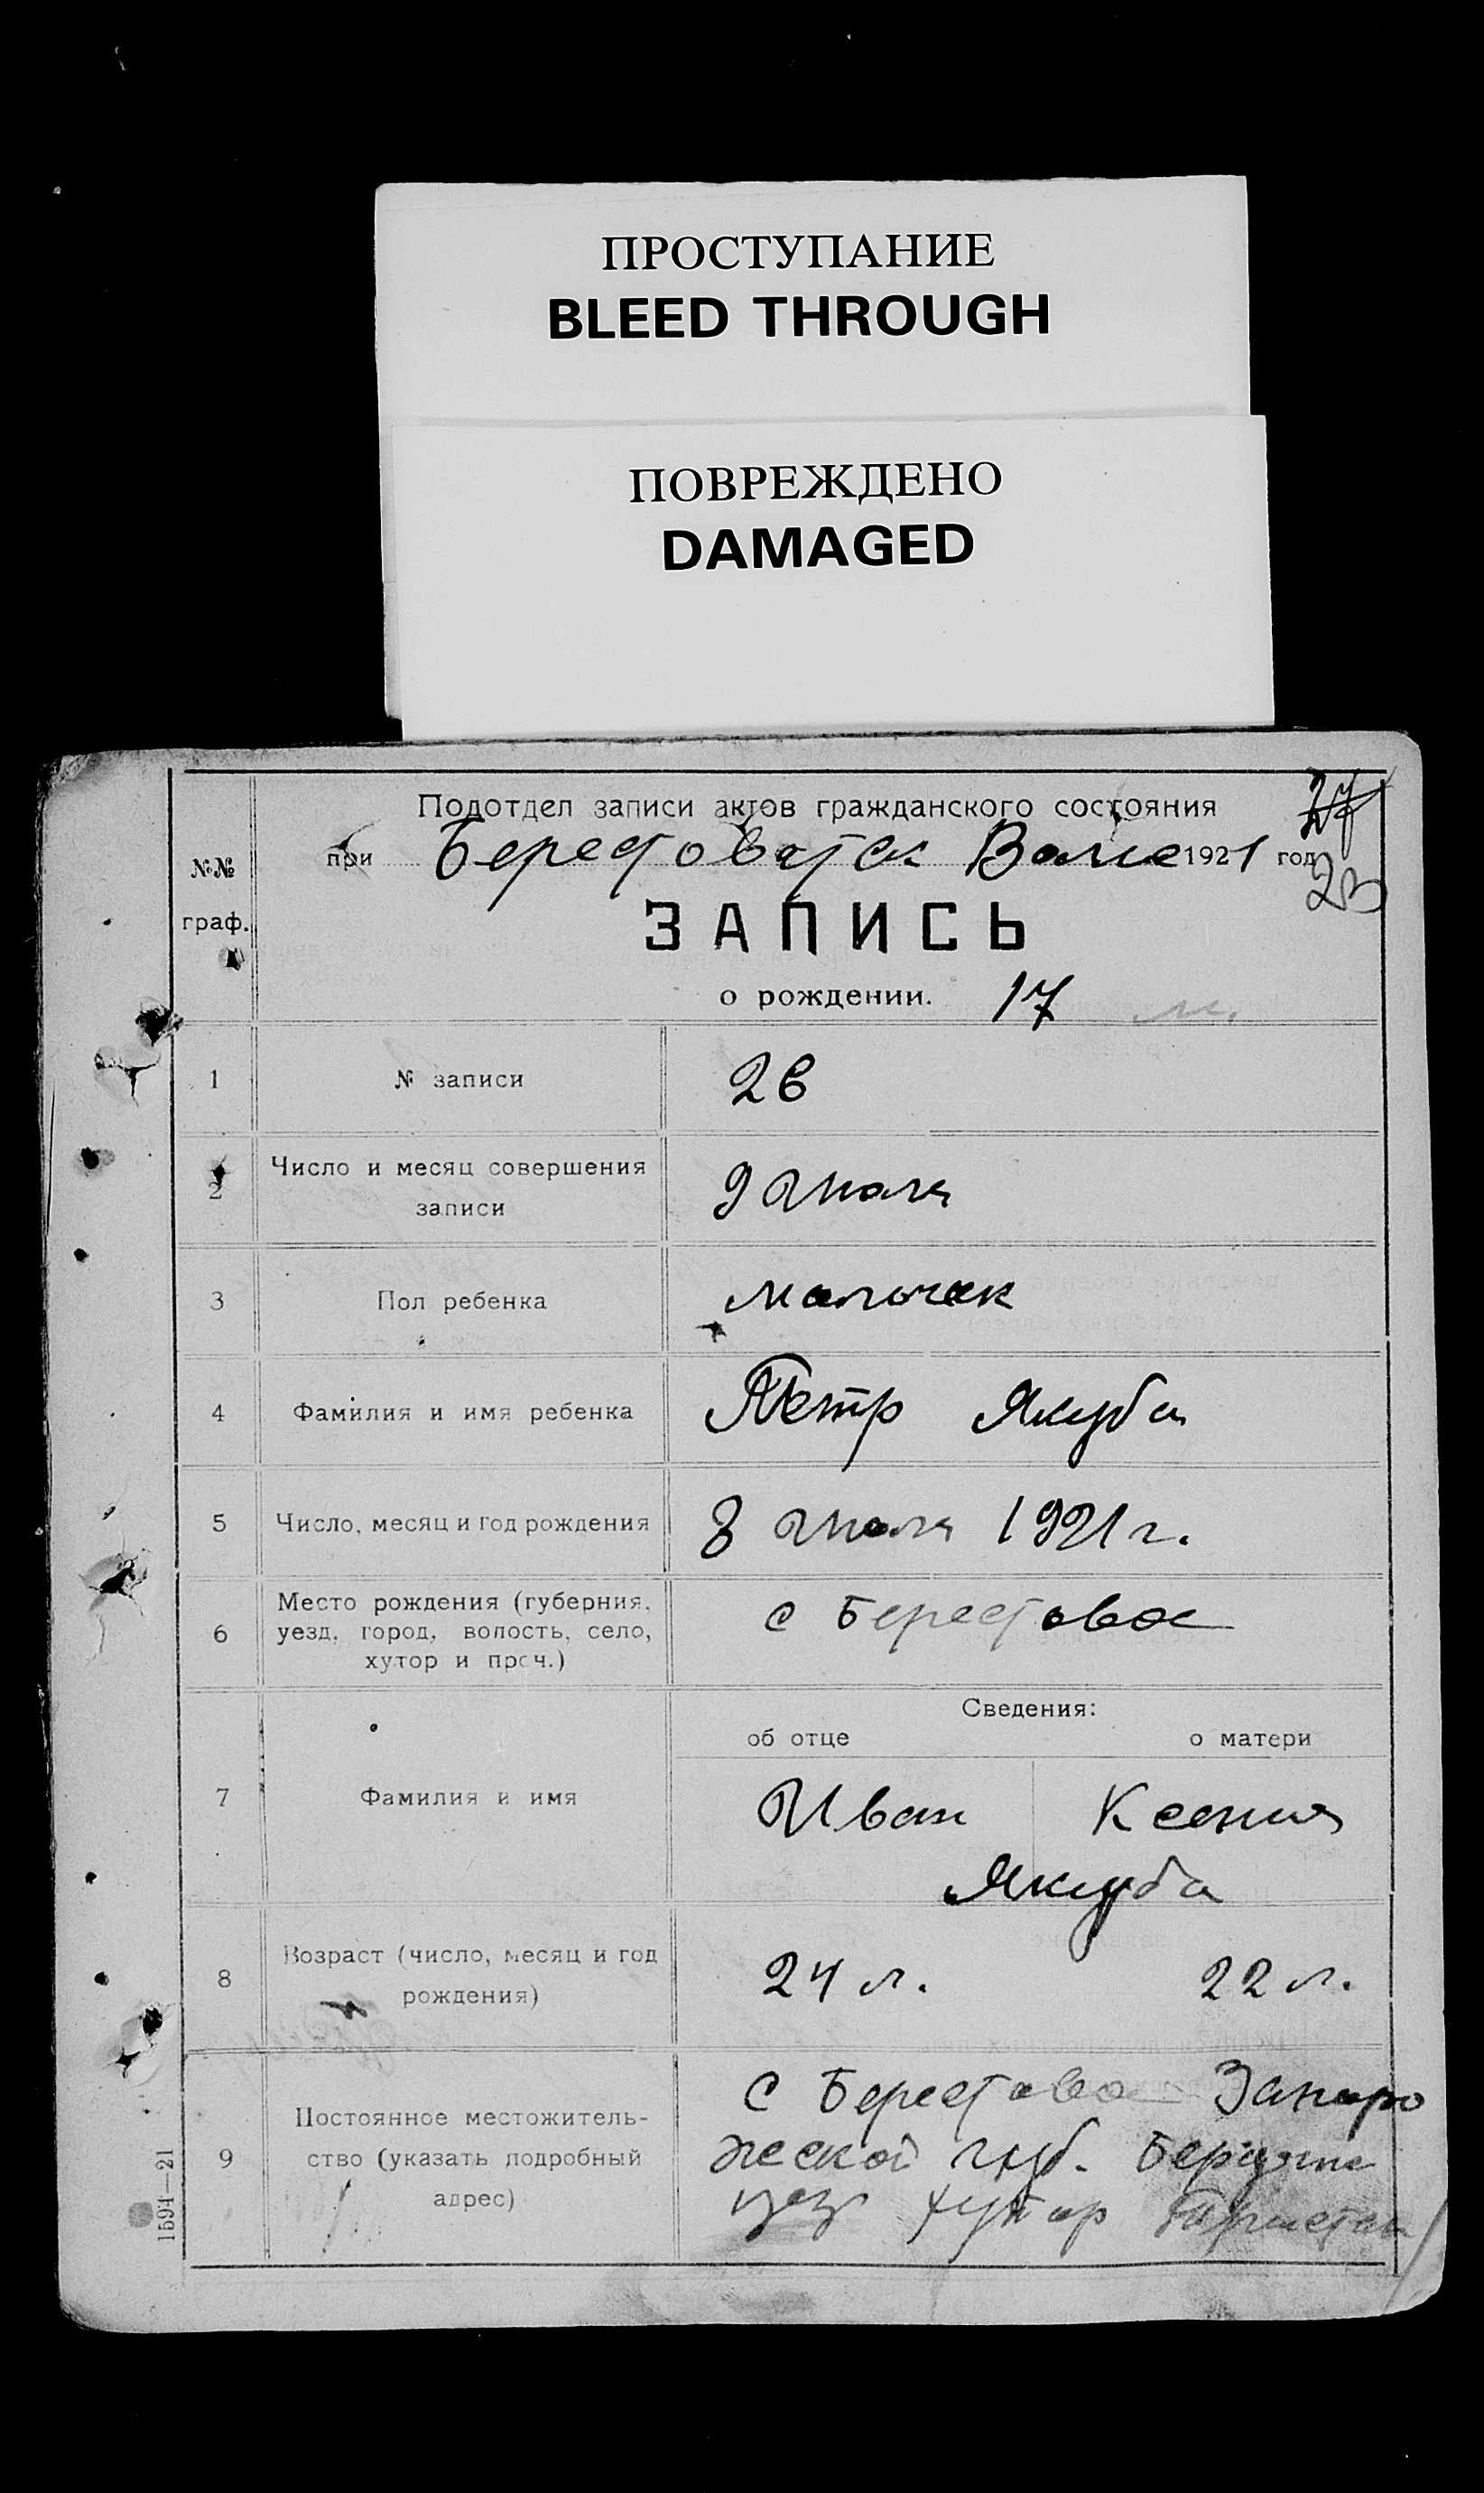 ПРОСТУПАНИЕ
BLEED THROUGH
ПОВРЕЖДЕНО
DAMAGED
Подотдел записи актов гражданского состояния
27
№№ при Берестоватск 1921 год
23
граф. ЗАПИСЬ
о рождении. 17 м.
1 № записи 26
2 Число и месяц совершения
записи 9 Июля
3 Пол ребенка мальчик
4 Фамилия и имя ребенка Петр Якуба
5 Число, месяц и год рождения 8 Июля 1921 г.
6 Место рождения (губерния,
уезд, город, волость, село,
хутор и проч.) с Берестовое
Сведения:
об отце о матери
7 Фамилия и имя Иван Ксения
Якуба
8 Возраст (число, месяц и год
рождения) 24 л. 22 л.
9 Постоянное местожитель-
ство (указать подробный
адрес) с Берестово Запоро
жской губ. Бердянс
уез хутор
1594—21